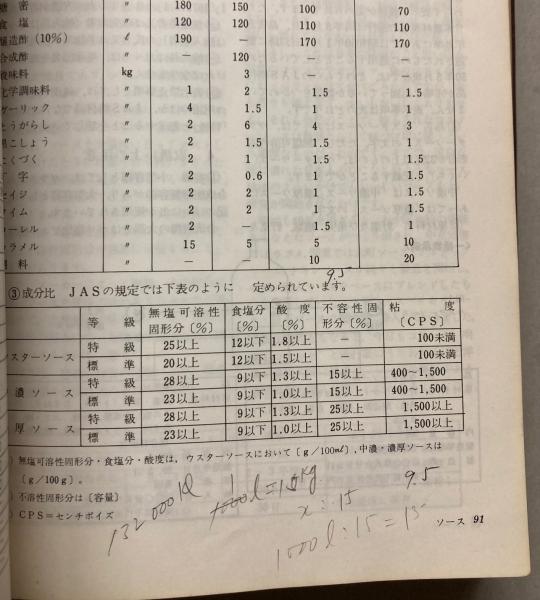 糖 密 〃 180 150 100 70
食 塩 〃 120 120 110 110
醸造酢 (10%) ℓ 190 — 170 170
合成酢 〃 — 120 — —
酸味料 kg 3 — —
化学調味料 〃 1 2 1.5 1.5
ガーリック 〃 4 1.5 1 1
とうがらし 〃 2 6 4 3
黒こしょう 〃 2 1.5 1.5 1
にくづく 〃 2 1 1.5 1.5
丁 字 〃 2 0.6 1 1
セイジ 〃 2 2 1 1.5
タイム 〃 2 2 1 1.5
ローレル 〃 2 — 1.5 1
カラメル 〃 15 5 5 10
料 〃 — — 10 20
9.5
③成分比 JASの規定では下表のように 定められています。
等 級 無塩可溶性固形分〔%〕 食塩分〔%〕 酸 度〔%〕 不容性固形分〔%〕 粘 度〔CPS〕
スターソース 特 級 25以上 12以下 1.8以上 — 100未満
標 準 20以上 12以下 1.5以上 — 100未満
濃 ソース 特 級 28以上 9以下 1.3以上 15以上 400~1,500
標 準 23以上 9以下 1.0以上 15以上 400~1,500
厚 ソース 特 級 28以上 9以下 1.3以上 25以上 1,500以上
標 準 23以上 9以下 1.0以上 25以上 1,500以上
) 無塩可溶性固形分・食塩分・酸度は, ウスターソースにおいて〔g/100mℓ〕,中濃・濃厚ソースは
〔g/100g〕。
) 不溶性固形分は〔容量〕
) CPS=センチポイズ
132000
9.5
x : 15
1000ℓ:15=15
ソース 91